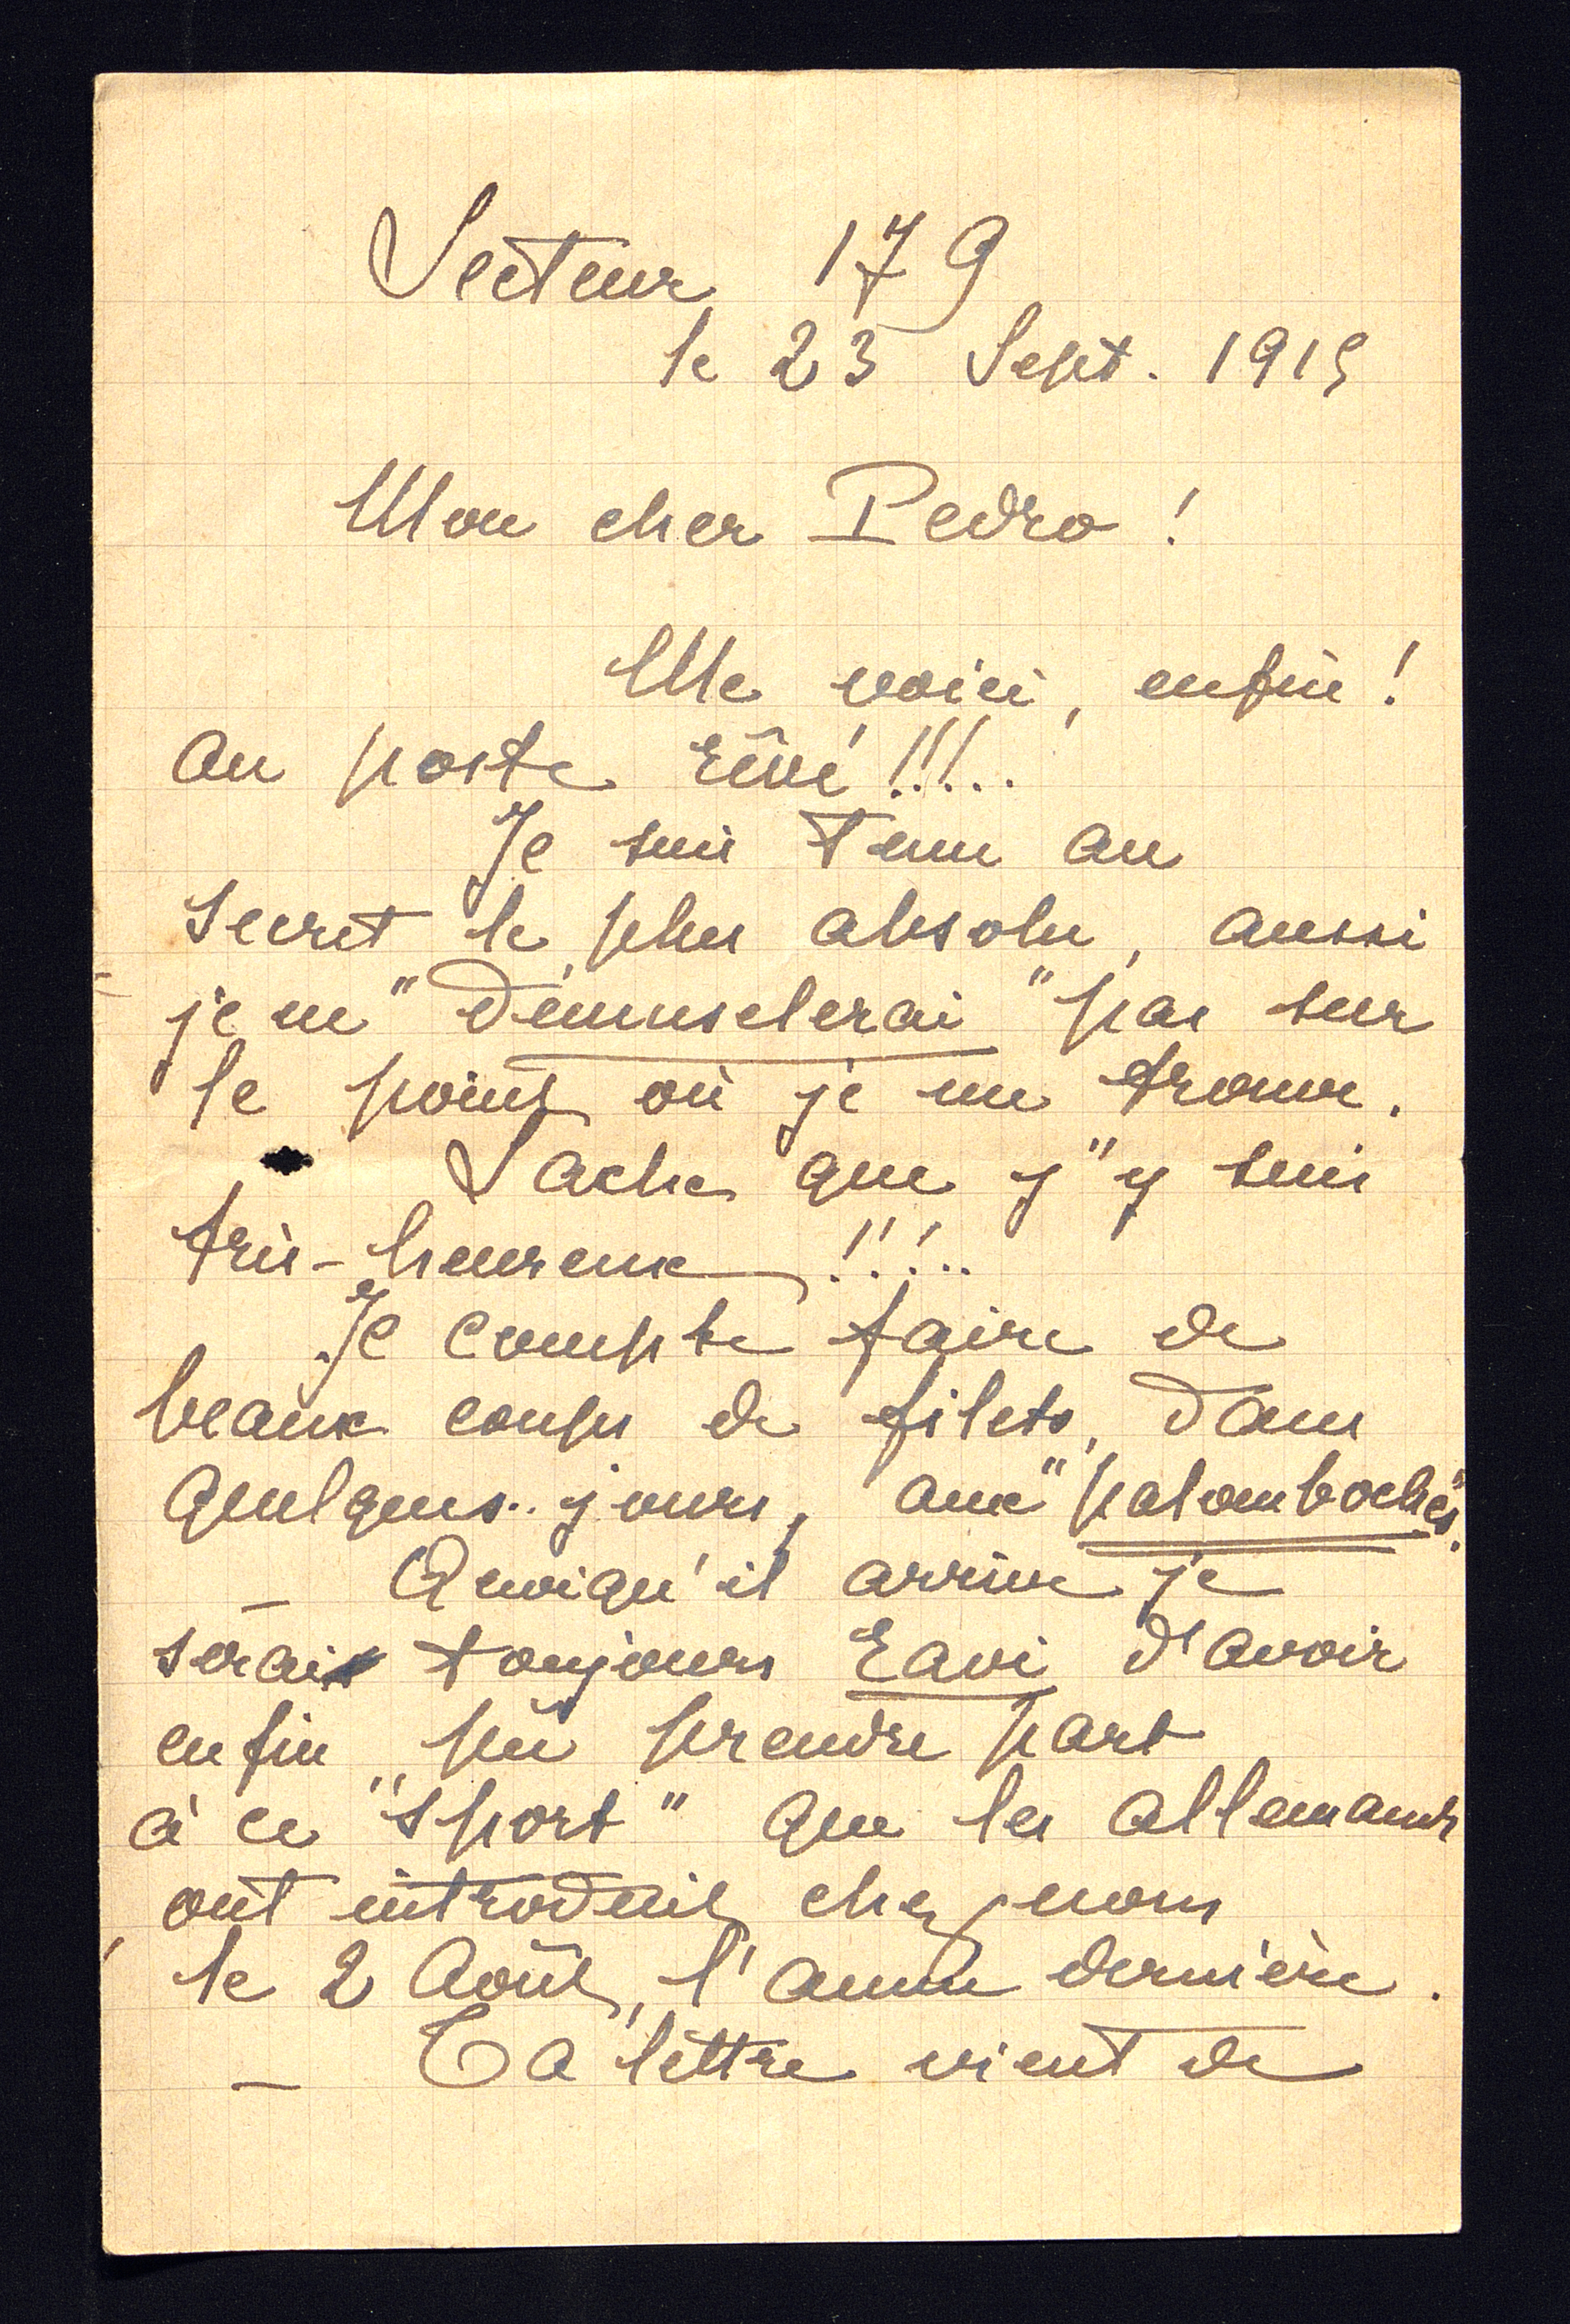 Secteur 179
le 23 Sept. 1915
Mon cher Pedro !
Me voici, enfin !
au poste rêvé !!!..
Je suis tenu au
secret le plus absolu, aussi
je ne "démuselerai" pas sur
le point où je me trouve.
Sache que j'y suis
très-heureux !!!..
Je compte faire de
beaux coups de filets, dans
quelques jours, aux "palomboches".
_ Quoiqu'il arrive je
serai toujours ravi d'avoir
enfin pû prendre part
à ce "sport" que les allemands
ont introduit chez nous
le 2 Août, l'année dernière.
_ Ta lettre vient de